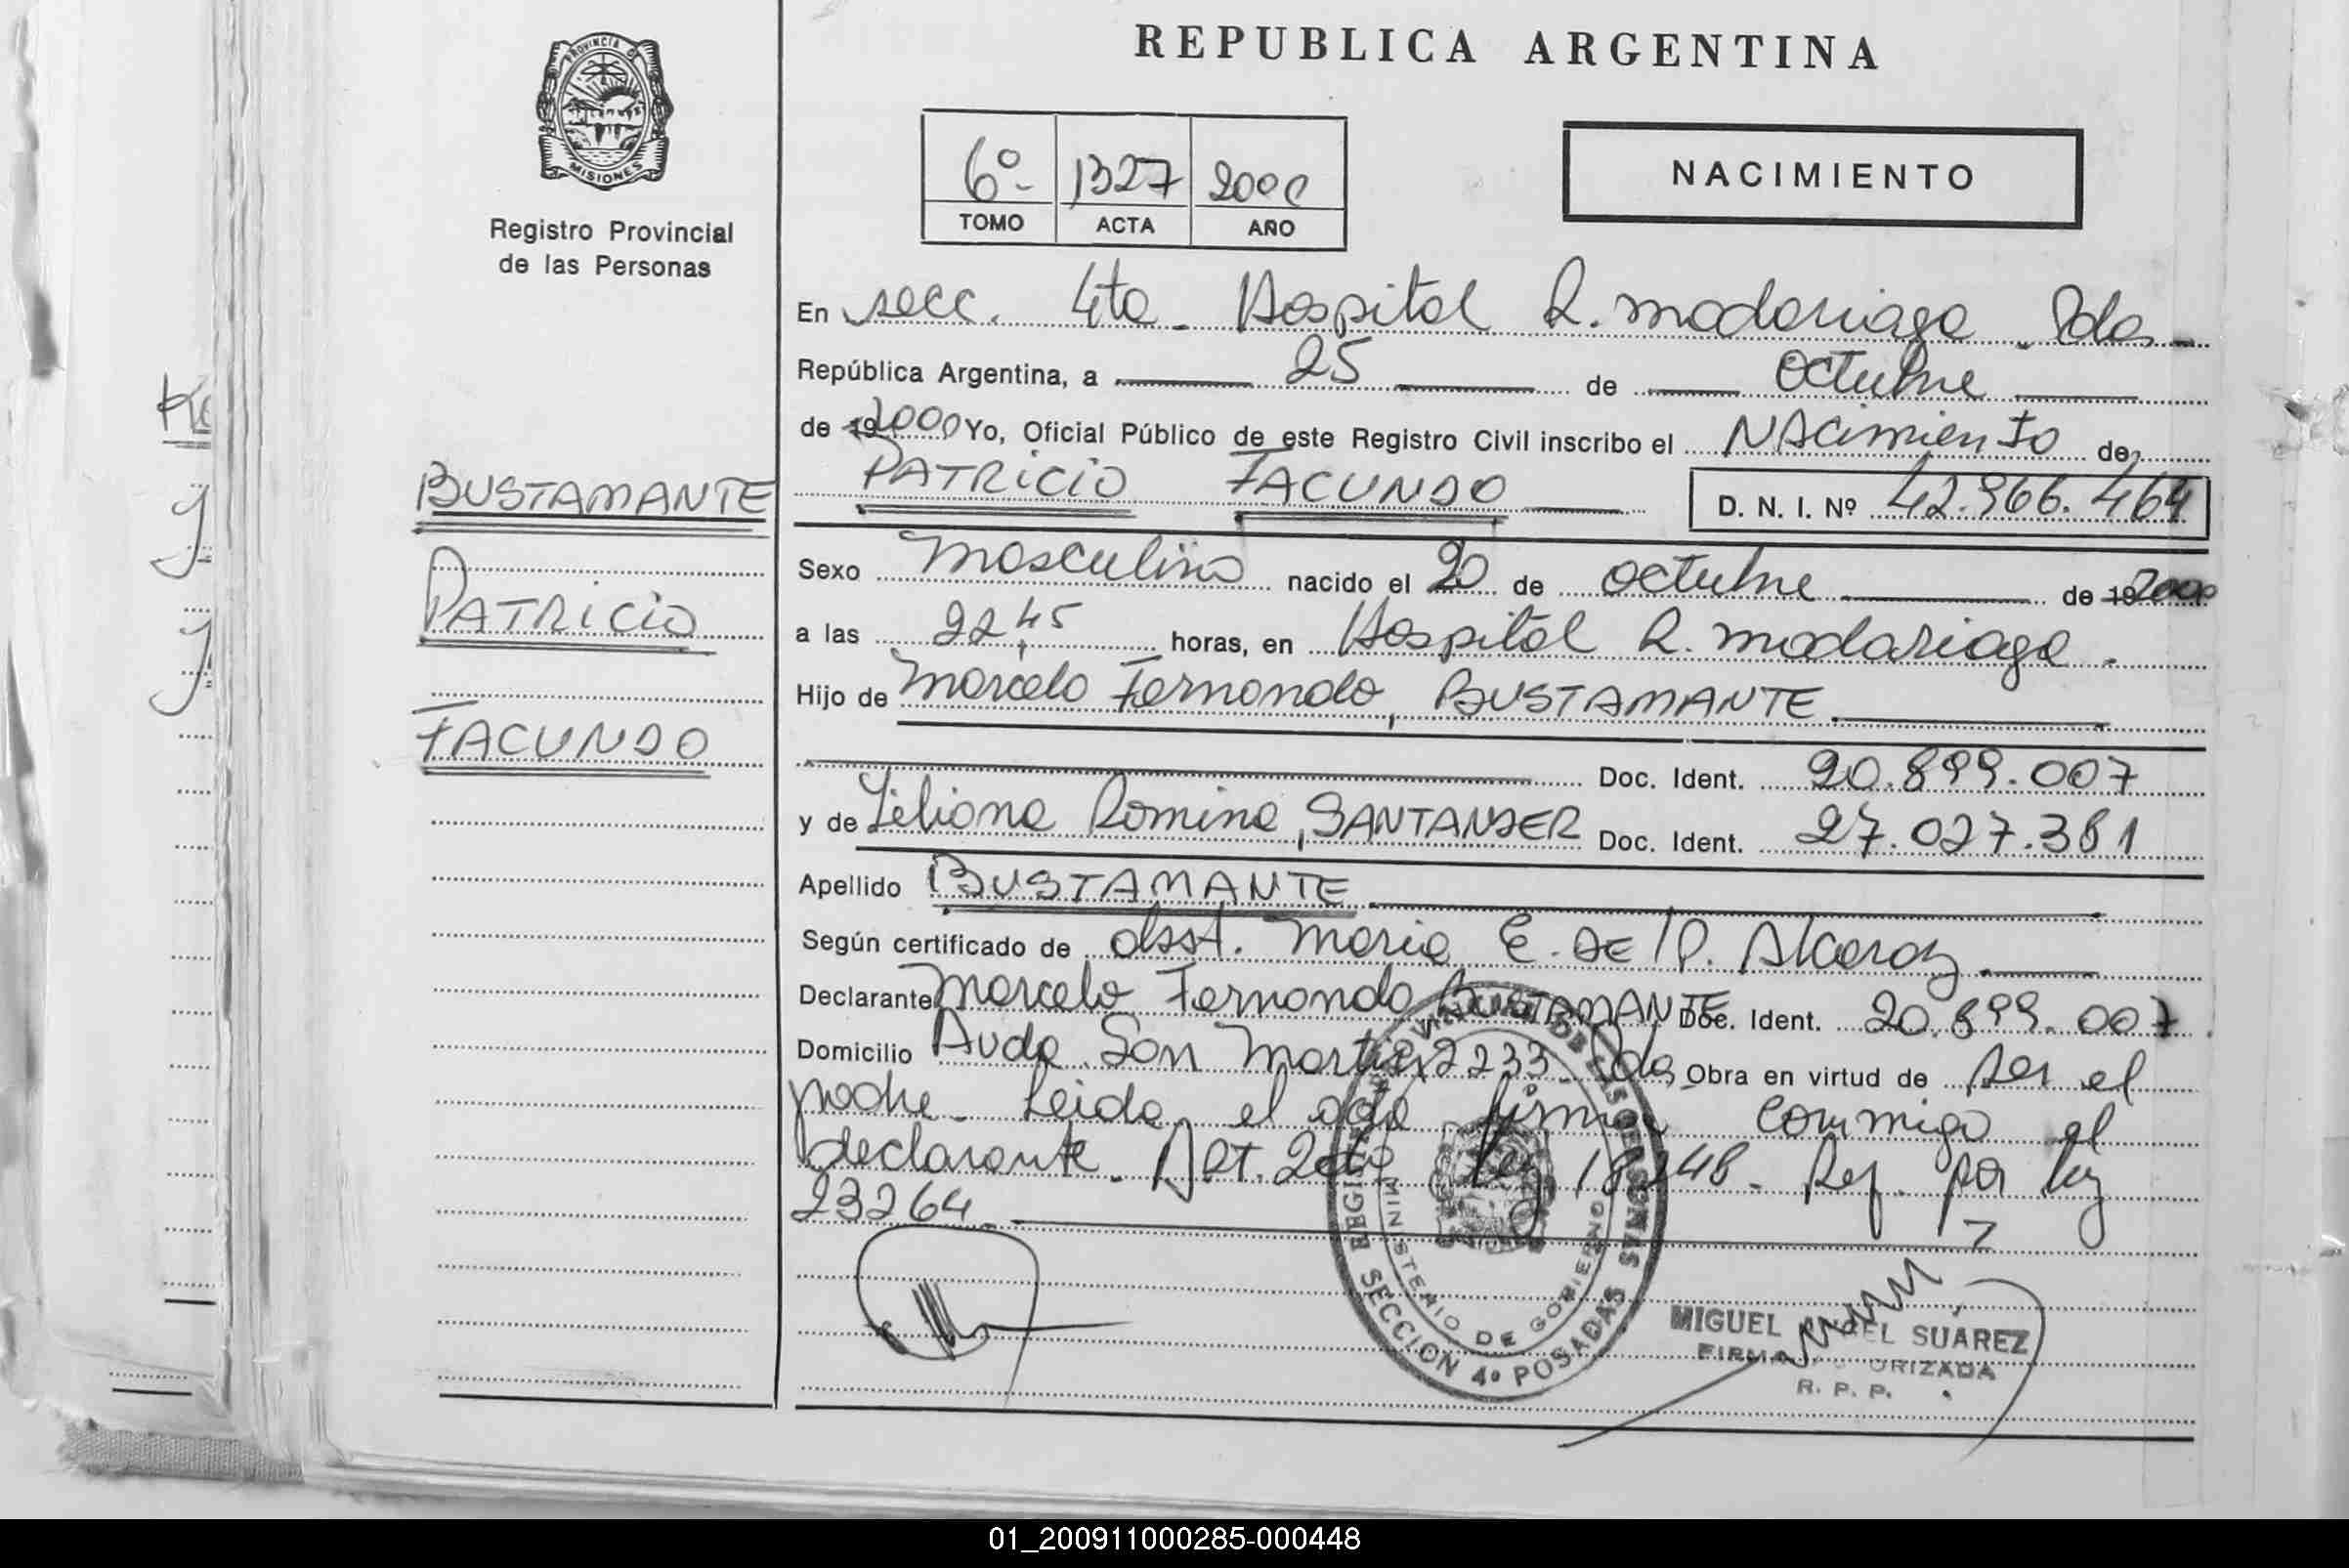 PROVINCIA DE
MISIONES
Registro Provincial
de las Personas
BUSTAMANTE
PATRICIO
FACUNDO
REPUBLICA ARGENTINA
6º 1327 2000
TOMO ACTA AÑO
NACIMIENTO
En secc. 4ta. Hospital R. Madariaga. Pdas
República Argentina, a 25 de octubre
de 19 2000 Yo, Oficial Público de este Registro Civil inscribo el NACimiento de
PATRICIO FACUNDO D. N. I. Nº 42.966.464
Sexo Masculino nacido el 20 de octubre de 19 2000
a las 22,45 horas, en Hospital R. Madariaga.
Hijo de Marcelo Fernando, BUSTAMANTE
Doc. Ident. 20.899.007
y de Liliana Romina, SANTANDER Doc. Ident. 27.027.381
Apellido BUSTAMANTE
Según certificado de obst. Maria E. DE P. Alcaraz
Declarante Marcelo Fernando BUSTAMANTE Doc. Ident. 20.899.007
Domicilio Avda. San Martin 2233. Pdas Obra en virtud de ser el
padre. Leida el acta firma conmigo el
declarante. Art. 2do Ley 18248. Ref. por ley
23264.
MINISTERIO DE GOBIERNO
SECCION 4º POSADAS
MIGUEL ANGEL SUAREZ
FIRMA AUTORIZADA
R. P. P.
01_200911000285-000448